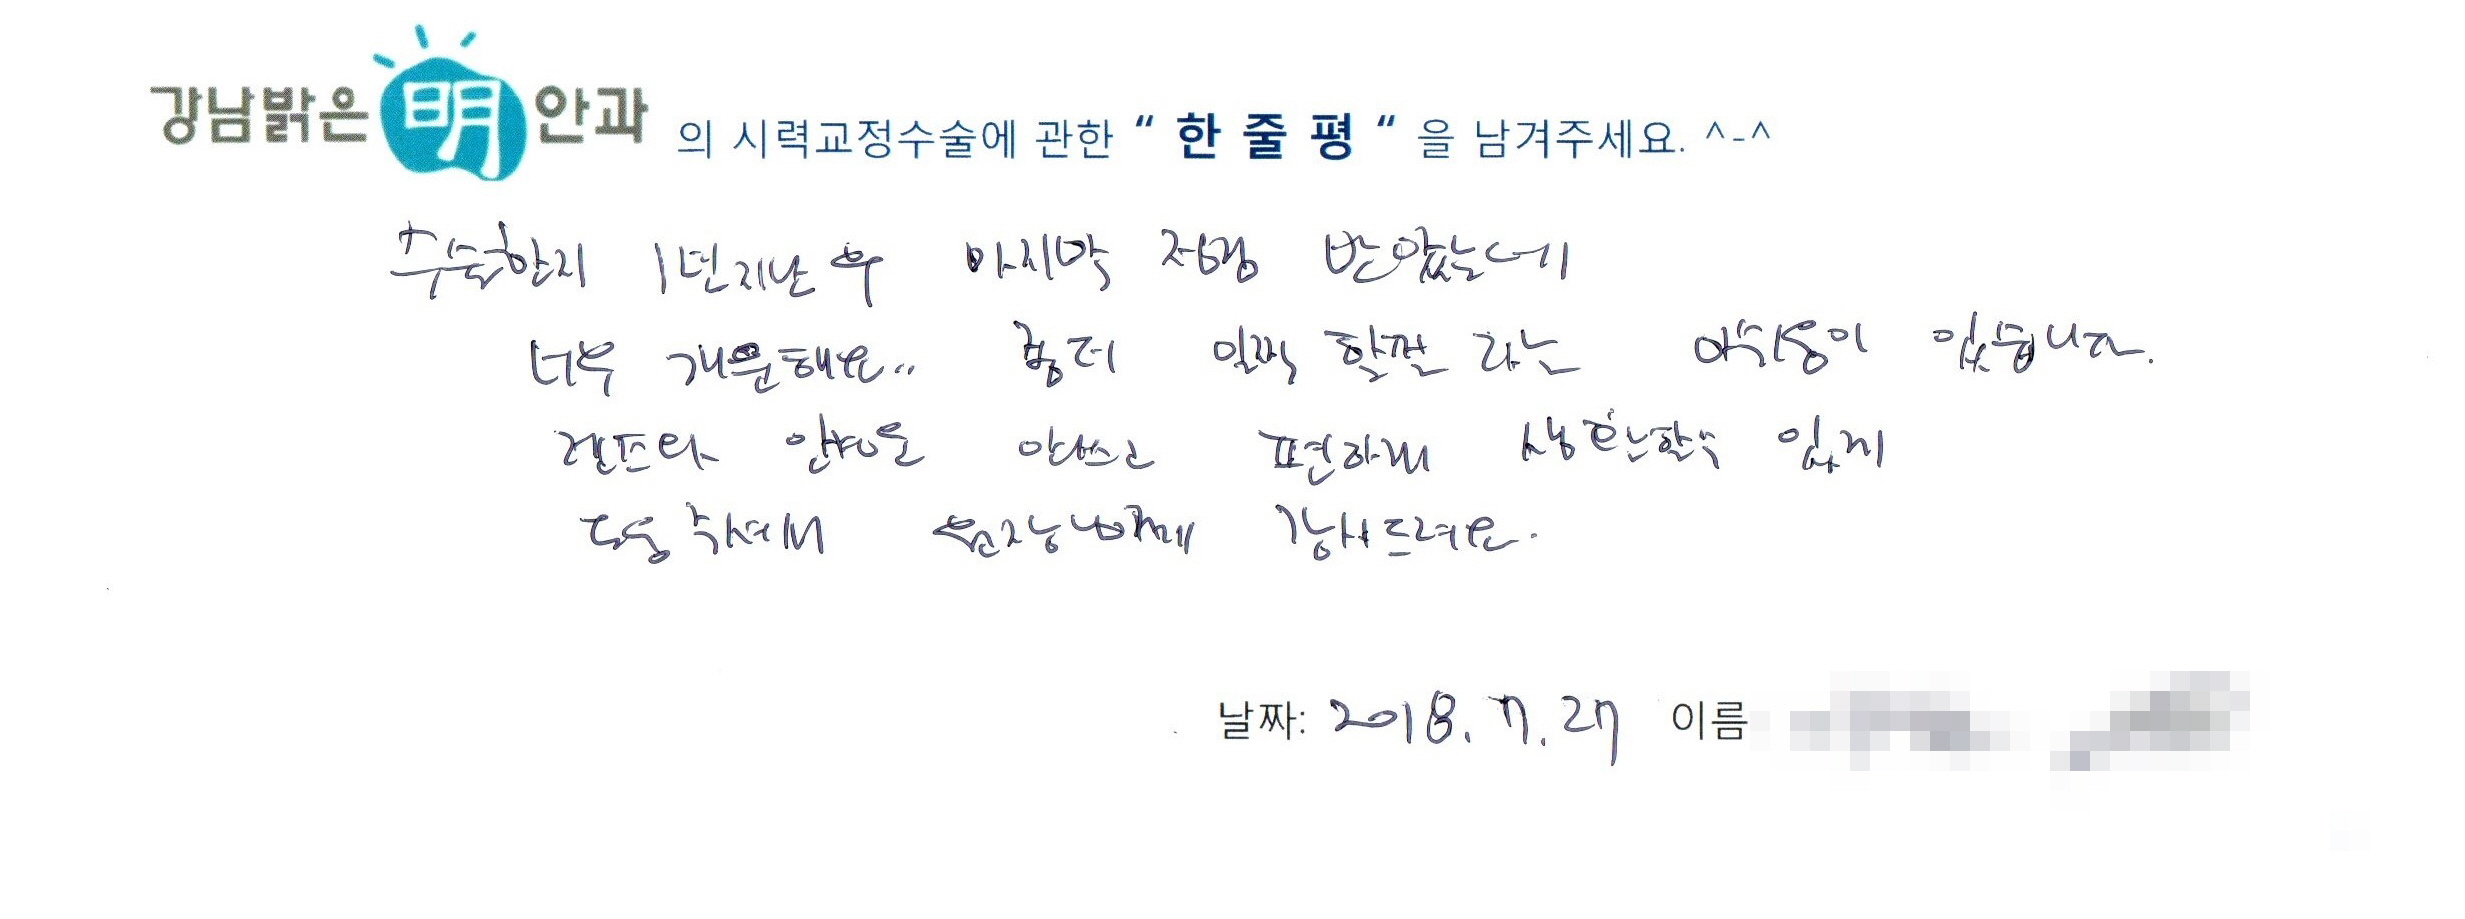 강남밝은 明 안과 의 시력교정수술에 관한 “ 한 줄 평 “ 을 남겨주세요. ^-^
수술한지 1년지난 후 마지막 점검 받았는데
너무 개운해요.. 좀더 일찍 할껄 라는 아쉬움이 있습니다.
렌즈와 안경도 안쓰고 편하게 생활할수 있게
도움 주셔서 원장님께 감사드려요.
날짜: 2018. 7. 27 이름